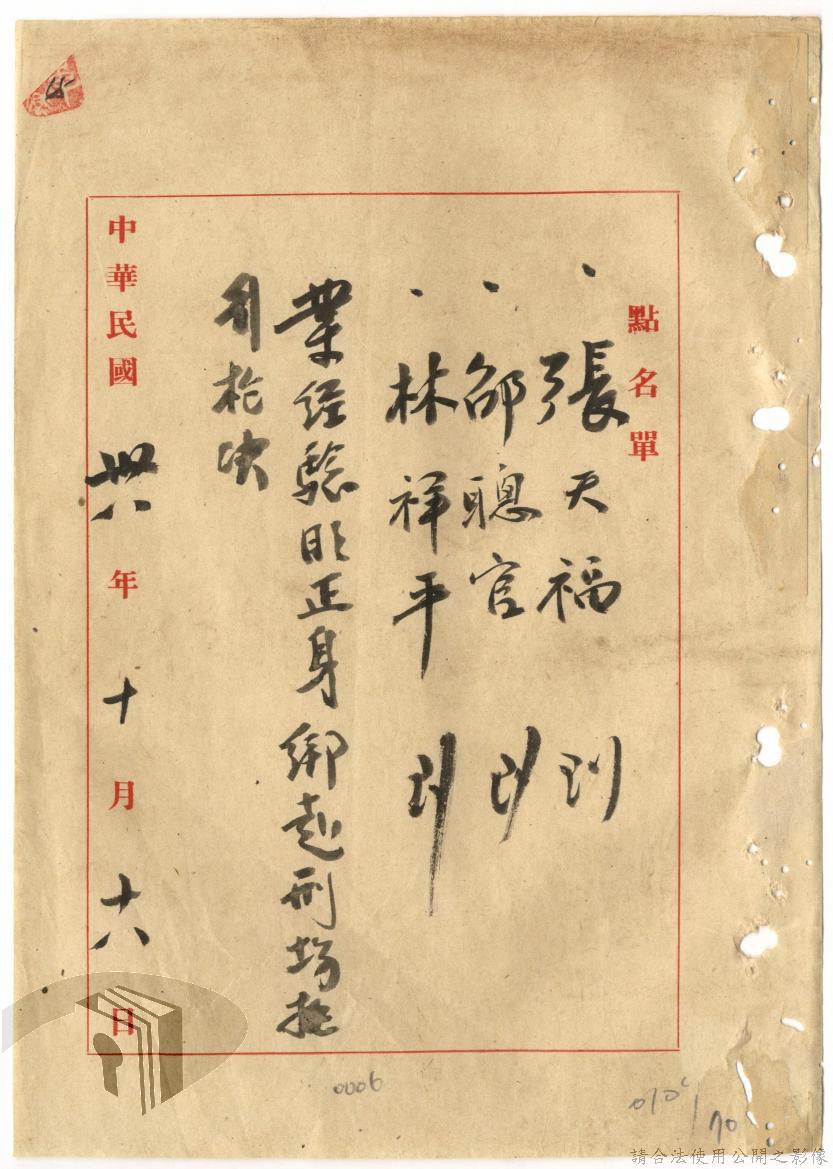 點名單
、張天福 到
、邵聰官 到
、林祥平 到
業經驗明正身綁赴刑場執
槍决
中華民國卅八年十月十八日
15
0006
70
請合法使用公開之影像